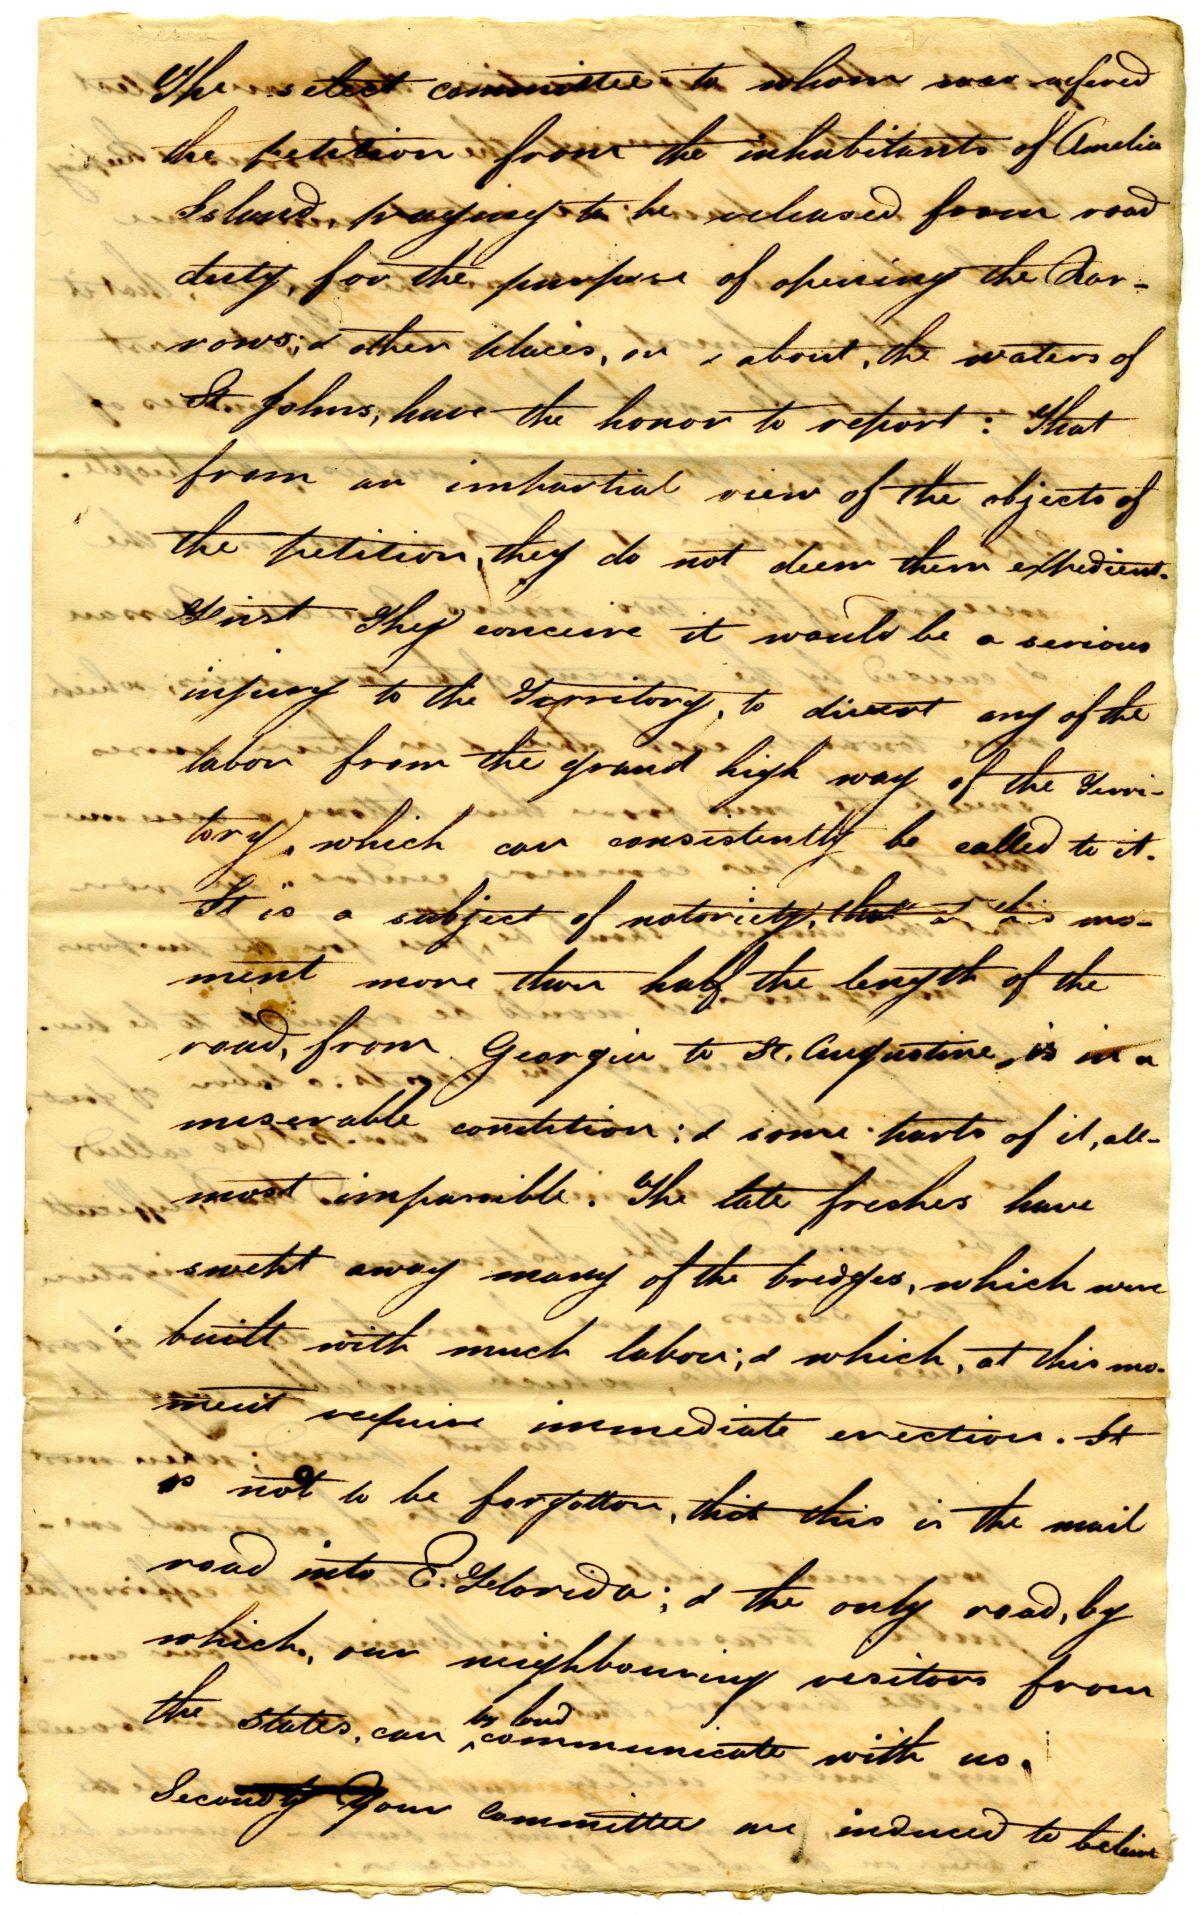 The select committee to whom was refered
the petition from the inhabitants of Amelia
Island, praying to be released from road
duty, for the purpose of opening the Nar-
rows; & other places, on & about, the waters of
St Johns, have the honor to report: That
from an impartial view of the objects of
the petition, they do not deem them expedient.
First They conceive it would be a serious
injury to the Territory, to divert any of the
labor from the grand high way of the Terri-
tory, which can consistently be called to it.
It is a subject of notoriety, that at this mo-
ment more than half the length of the
road, from Georgia to St. Augustine, is in a
miserable condition: & some parts of it, all-
most impassible. The late freshes have
swept away many of the bridges, which were
built with much labour; & which, at this mo-
ment require immediate erection. It
is not to be forgotten, that this is the mail
road into E. Florida; & the only road, by
which, our neighbouring visitors from
the states, can by land communicate with us.
Secondly Your committee are induced to believe